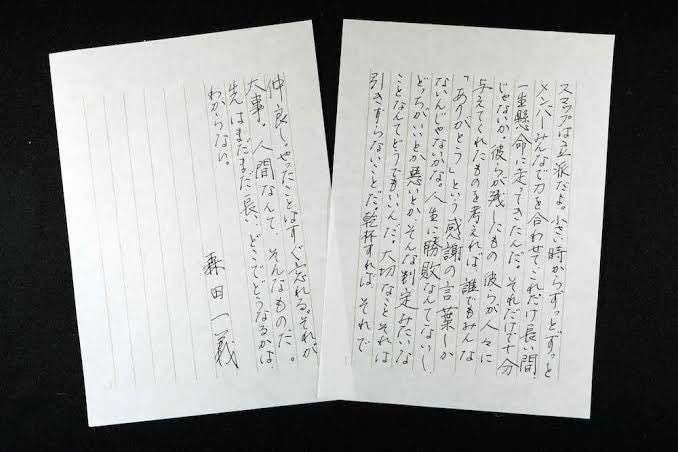 スマップは立派だよ。小さい時からずっとずっと
メンバーみんなで力を合わせてこれだけ長い間、
一生懸命に走ってきたんだ。それだけで十分
じゃないか。彼らが残したもの 彼らが人々に
与えてくれたものを考えれば 誰でもみんな
「ありがとう」という感謝の言葉しか
ないんじゃないかな。人生に勝敗なんてないし
どっちがいいとか悪いとか そんな判定みたいな
ことなんてどうでもいいんだ。大切なこと それは
引きずらないことだ。乾杯すれば それで
仲良し。やったことはすぐ忘れる。それが
大事。人間なんて、そんなものだ。
先はまだまだ長い。どこでどうなるかは、
わからない。
森田一義